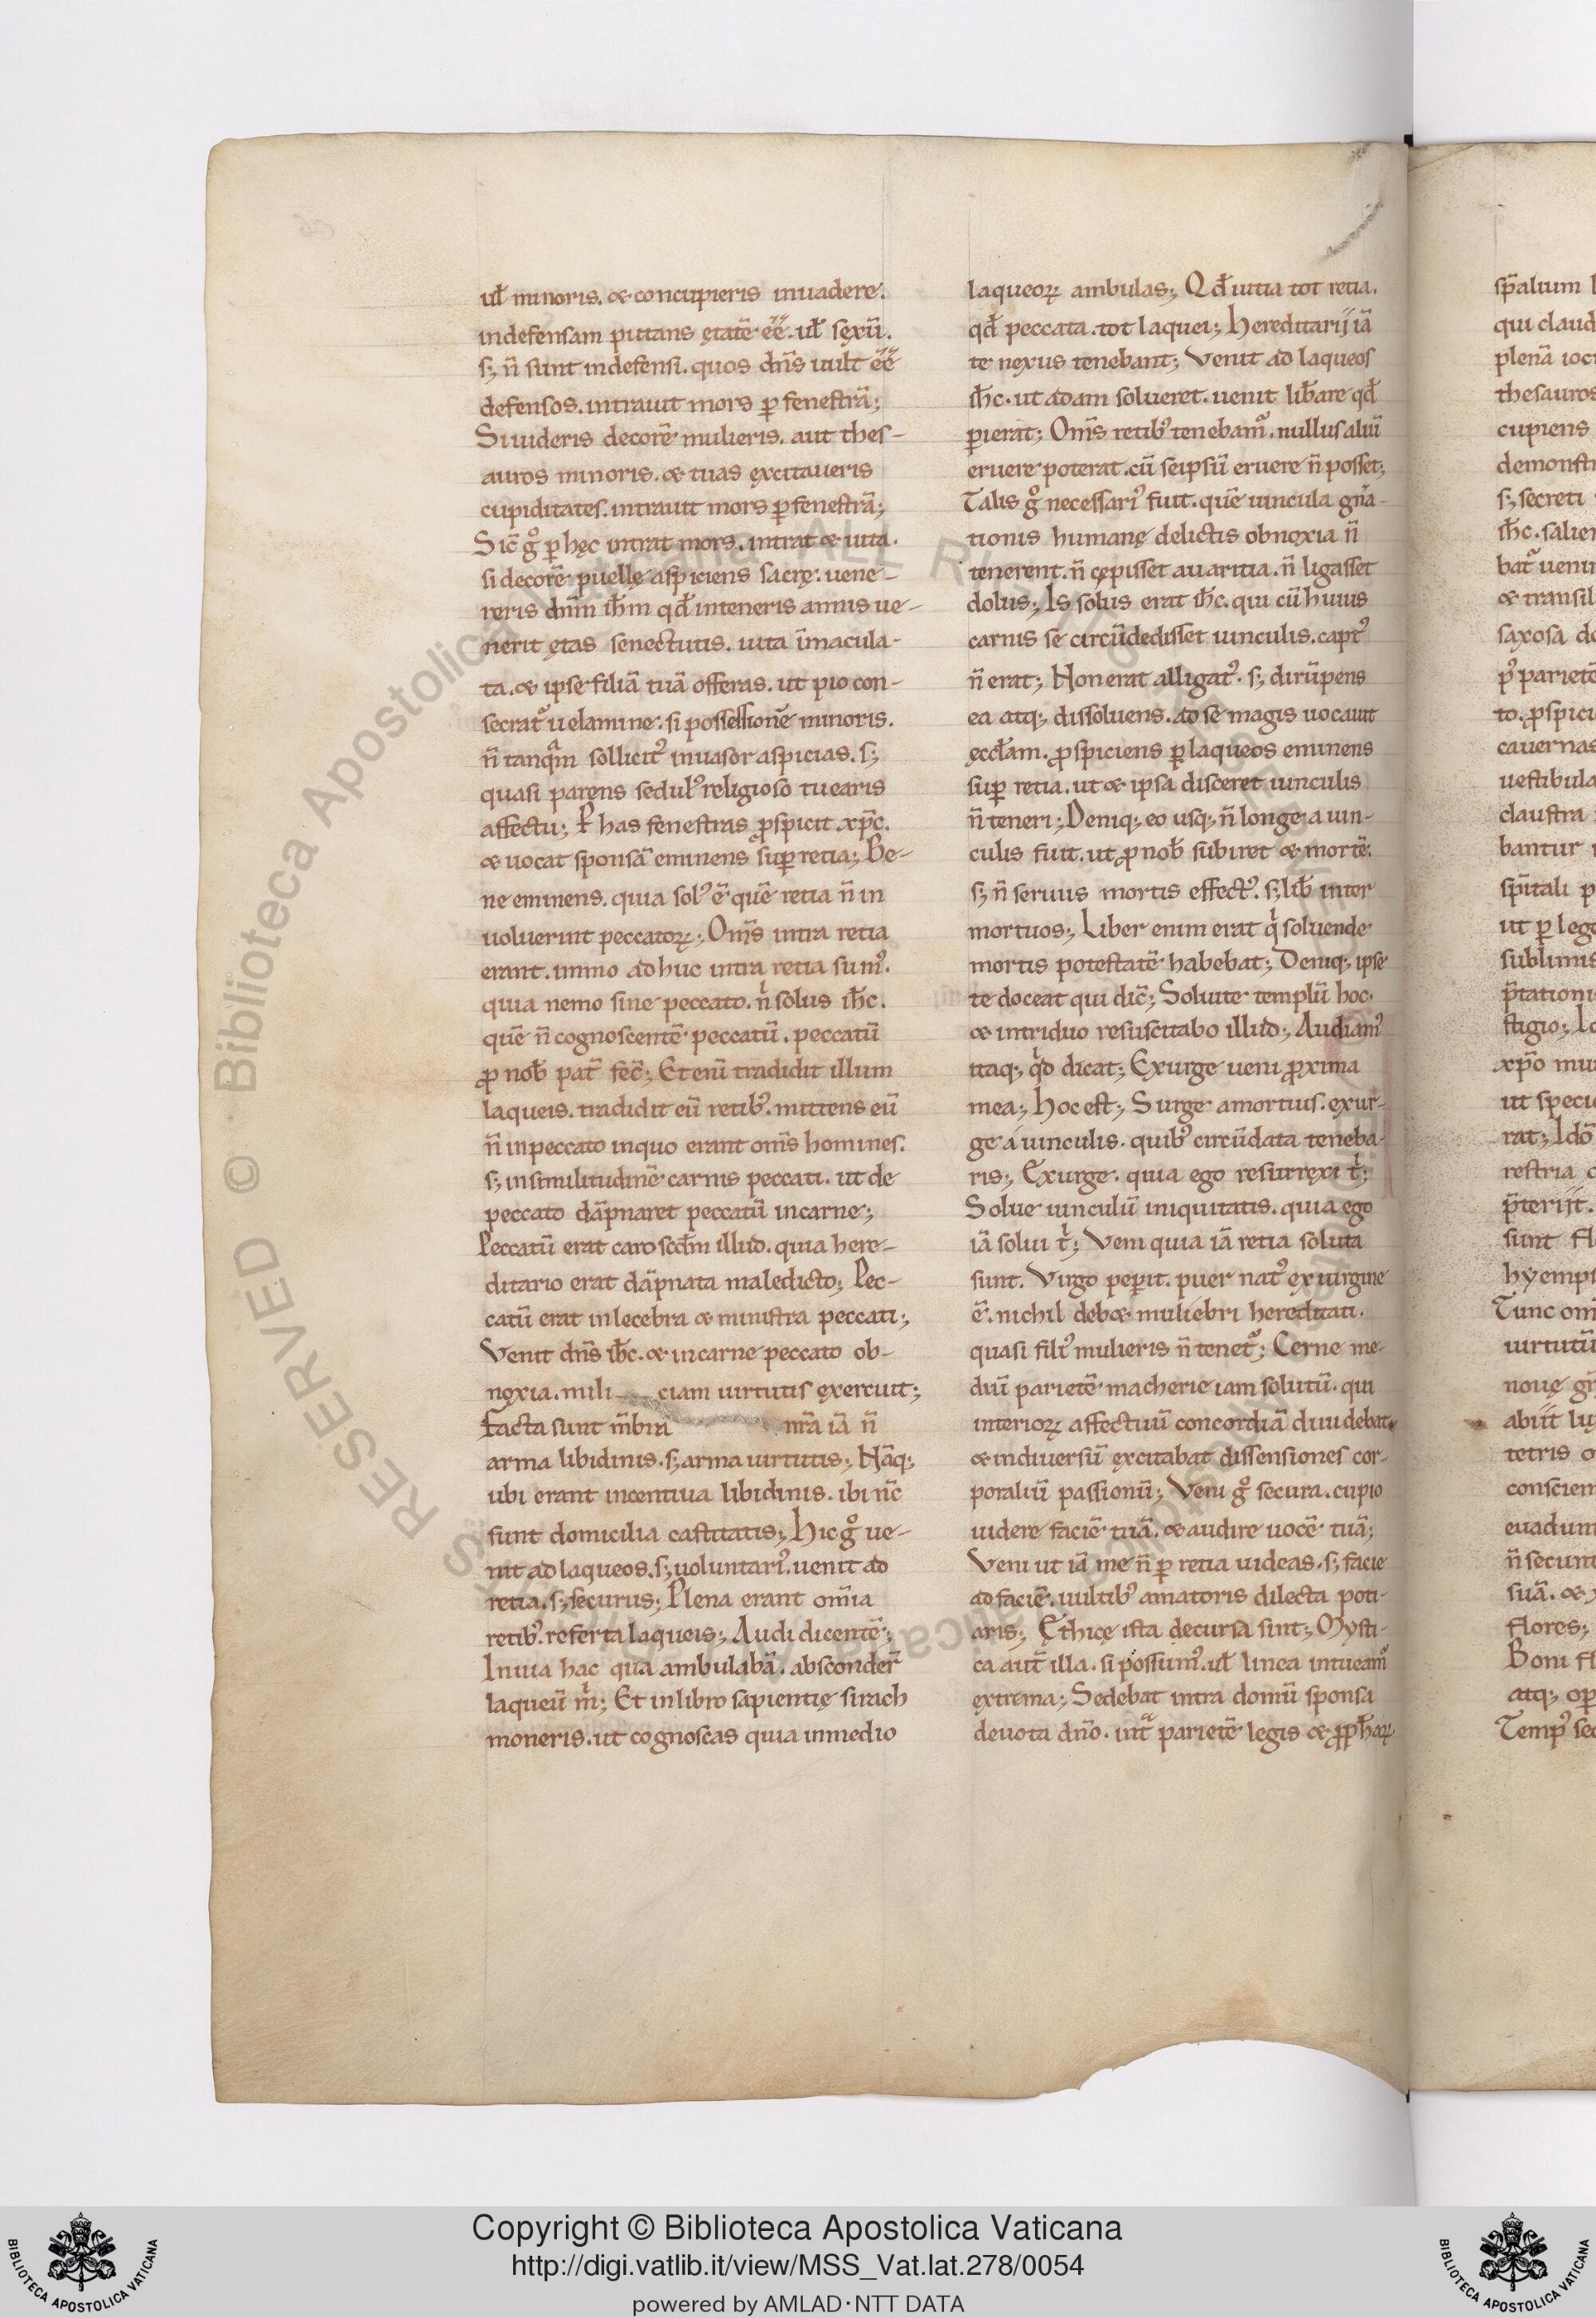 ul̄ minoris. & concupieris inuadere.
indefensam putans ętatē eē̄. ul̄ sęxū.
s; n̄ sunt indefensi. quos dn̄s uult eē̄
defensos. intrauit mors ꝑ fenestrā;
Si uideris decorē mulieris. aut thes-
auros minoris. & tuas excitaueris
cupiditates. intrauit mors ꝑ fenestrā;
Sic̄ gͦ ꝑ hęc intrat mors. intrat & uita.
si decorē puellę aspiciens sacrę. uene-
reris dn̄m ih̄m qd̄ inteneris annis ue-
nerit ętas senectutis. uita īmacula-
ta. & ipse filiā tuā offeras. ut pio con-
secratᷣ uelamine. si possessionē minoris.
n̄ tanqᷓm sollicitꝰ inuasor aspicias. s;
quasi parens sedulꝰ religioso tuearis
affectu; P̱ has fenestras ꝓspicit xp̄c.
& uocat sponsā eminens suꝑ retia; Be-
ne eminens. quia solꝰ ē quē retia n̄ in
uoluerint peccatoꝝ; Om̄s intra retia
erant. immo adhuc intra retia sumꝰ.
quia nemo sine peccato. nͥ solus ih̄c.
quē n̄ cognoscentē peccatū. peccatū
ꝓ nob̄ pat̄ fec̄; Et enī tradidit illum
laqueis. tradidit eū retibꝰ. mittens eū
n̄ inpeccato inquo erant om̄s homines.
s; insimilitudinē carnis peccati. ut de
peccato dāpnaret peccatū incarne;
Peccatū erat caro scd̄m illud. quia here-
ditario erat dāpnata maledicto; Pec-
catū erat inlecebra & ministra peccati;
Venit dn̄s ih̄c. & incarne peccato ob-
noxia. mili ciam uirtutis exercuit;
Facta sunt m̄bra nr̄a iā n̄
arma libidinis. s; arma uirtutis; Nāq;
ubi erant incentiua libidinis. ibi nc̄
sunt domicilia castitatis; Hic gͦ ue-
nit ad laqueos. s; uoluntariꝰ. uenit ad
retia. s; securus; Plena erant om̄ia
retibꝰ. referta laqueis; Audi dicentē;
Inuia hac qua ambulabā. absconder̄
laqueū mͥ; Et inlibro sapientię sirach
moneris. ut cognoscas quia inmedio
laqueoꝝ ambulas; Qd̄ iutia tot retia.
qd̄ peccata. tot laquei; Hereditarij iā
te nexus tenebant; Venit ad laqueos
ih̄c. ut adam solueret. uenit lib̄are qd̄
ꝑierat; Om̄s retibꝰ tenebamᷣ. nullus aliū
eruere poterat. cū seipsū eruere n̄ posset;
Talis gͦ necessariꝰ fuit. quē uincula gn̄a-
tionis humanę delictis obnoxia n̄
tenerent. n̄ cępisset auaritia. n̄ ligasset
dolus; Is solus erat ih̄c. qui cū huius
carnis se circūdedisset uinculis. captꝰ
n̄ erat; Non erat alligatꝰ. s; dirūpens
ea atq; dissoluens. ad se magis uocauit
ęccl̄am. ꝓspiciens ꝑ laqueos eminens
suꝑ retia. ut & ipsa disceret uinculis
n̄ teneri; Deniq; eo usq; n̄ longe a uin-
culis fuit. ut ꝓ nob̄ subiret & mortē.
s; n̄ seruus mortis effectꝰ. s; lib̄ inter
mortuos; Liber enim erat qͥ soluende
mortis potestatē habebat; Deniq; ipse
te doceat qui dic̄; Soluite templū hoc.
& intriduo resuscitabo illud; Audiamꝰ
itaq; qͥd dicat; Exurge ueni ꝓxima
mea; Hoc est; Surge amortius. exur-
ge a uinculis. quibꝰ circūdata teneba-
ris; Exurge. quia ego resurrexi tͥ;
Solue uinculū iniquitatis. quia ego
iā solui tͥ; Veni quia iā retia soluta
sunt. Virgo peꝑit. puer natꝰ ex uirgine
ē. nichil deb& muliebri hereditati.
quasi filiꝰ mulieris n̄ tenetᷣ; Cerne me-
diū parietē macherie iam solutū. qui
interioꝝ affectuū concordiā diuidebat.
& indiuersū excitabat dissensiones cor-
poraliū passionū; Veni gͦ secura. cupio
uidere faciē tuā. & audire uocē tuā;
Veni ut iā me n̄ ꝑ retia uideas. s; facie
ad faciē. uultibꝰ amatoris dilecta poti-
aris; Ethicę ista decursa sint; Mysti-
ca aut̄ illa. si possumꝰ. ul̄ linea intueamᷣ
extrema; Sedebat intra domū sponsa
deuota dn̄o. intᷓ parietē legis & ꝓph̄aꝝ
sp̄alium
qui claud
plenā
thesauros
cupiens
demonst
s; secreti
ih̄c. salien
batᷣ ueni
& transil
saxosa
pꝰ pariete
to. ꝓspici
cauernas
uestibula
claustra
bantur
sp̄itali
ut ꝑ leg
sublimis
p̄tationi
stigio;
xp̄o mu
ut speci
rat; Idō
restria
p̄terijt.
sunt fl
hyemps
Tunc om
uirtutū
nouę
abiit
tetris
consciem
euadum
n̄ secun
suā. &
flores;
Boni fl
atq;
Tempꝰ
RESERVED © Biblioteca Apostolica Vaticana ALL RIGHTS
Copyright © Biblioteca Apostolica Vaticana
http://digi.vatlib.it/view/MSS_Vat.lat.278/0054
powered by AMLAD·NTT DATA
BIBLIOTECA APOSTOLICA VATICANA
BIBLIOTECA APOSTOLICA VATICANA